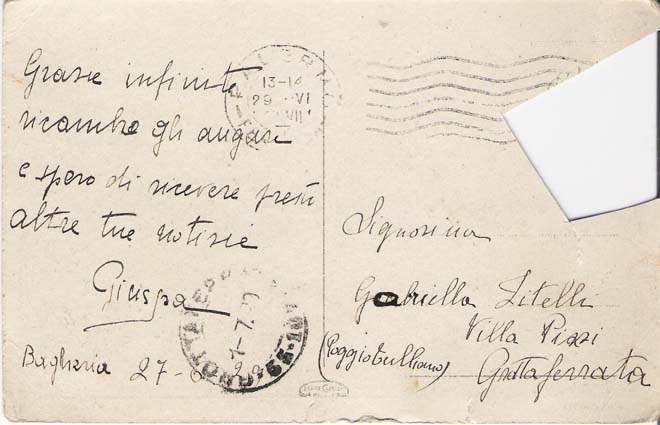 Grazie infinite
ricambio gli auguri
e spero di ricevere presto
altre tue notizie
Giuspa
Bagheria 27-6
PALERMO
13-14
29 VI
Signorina
Gabriella Zitelli
Villa Pizzi
(Poggio Tulliano)
Grottaferrata